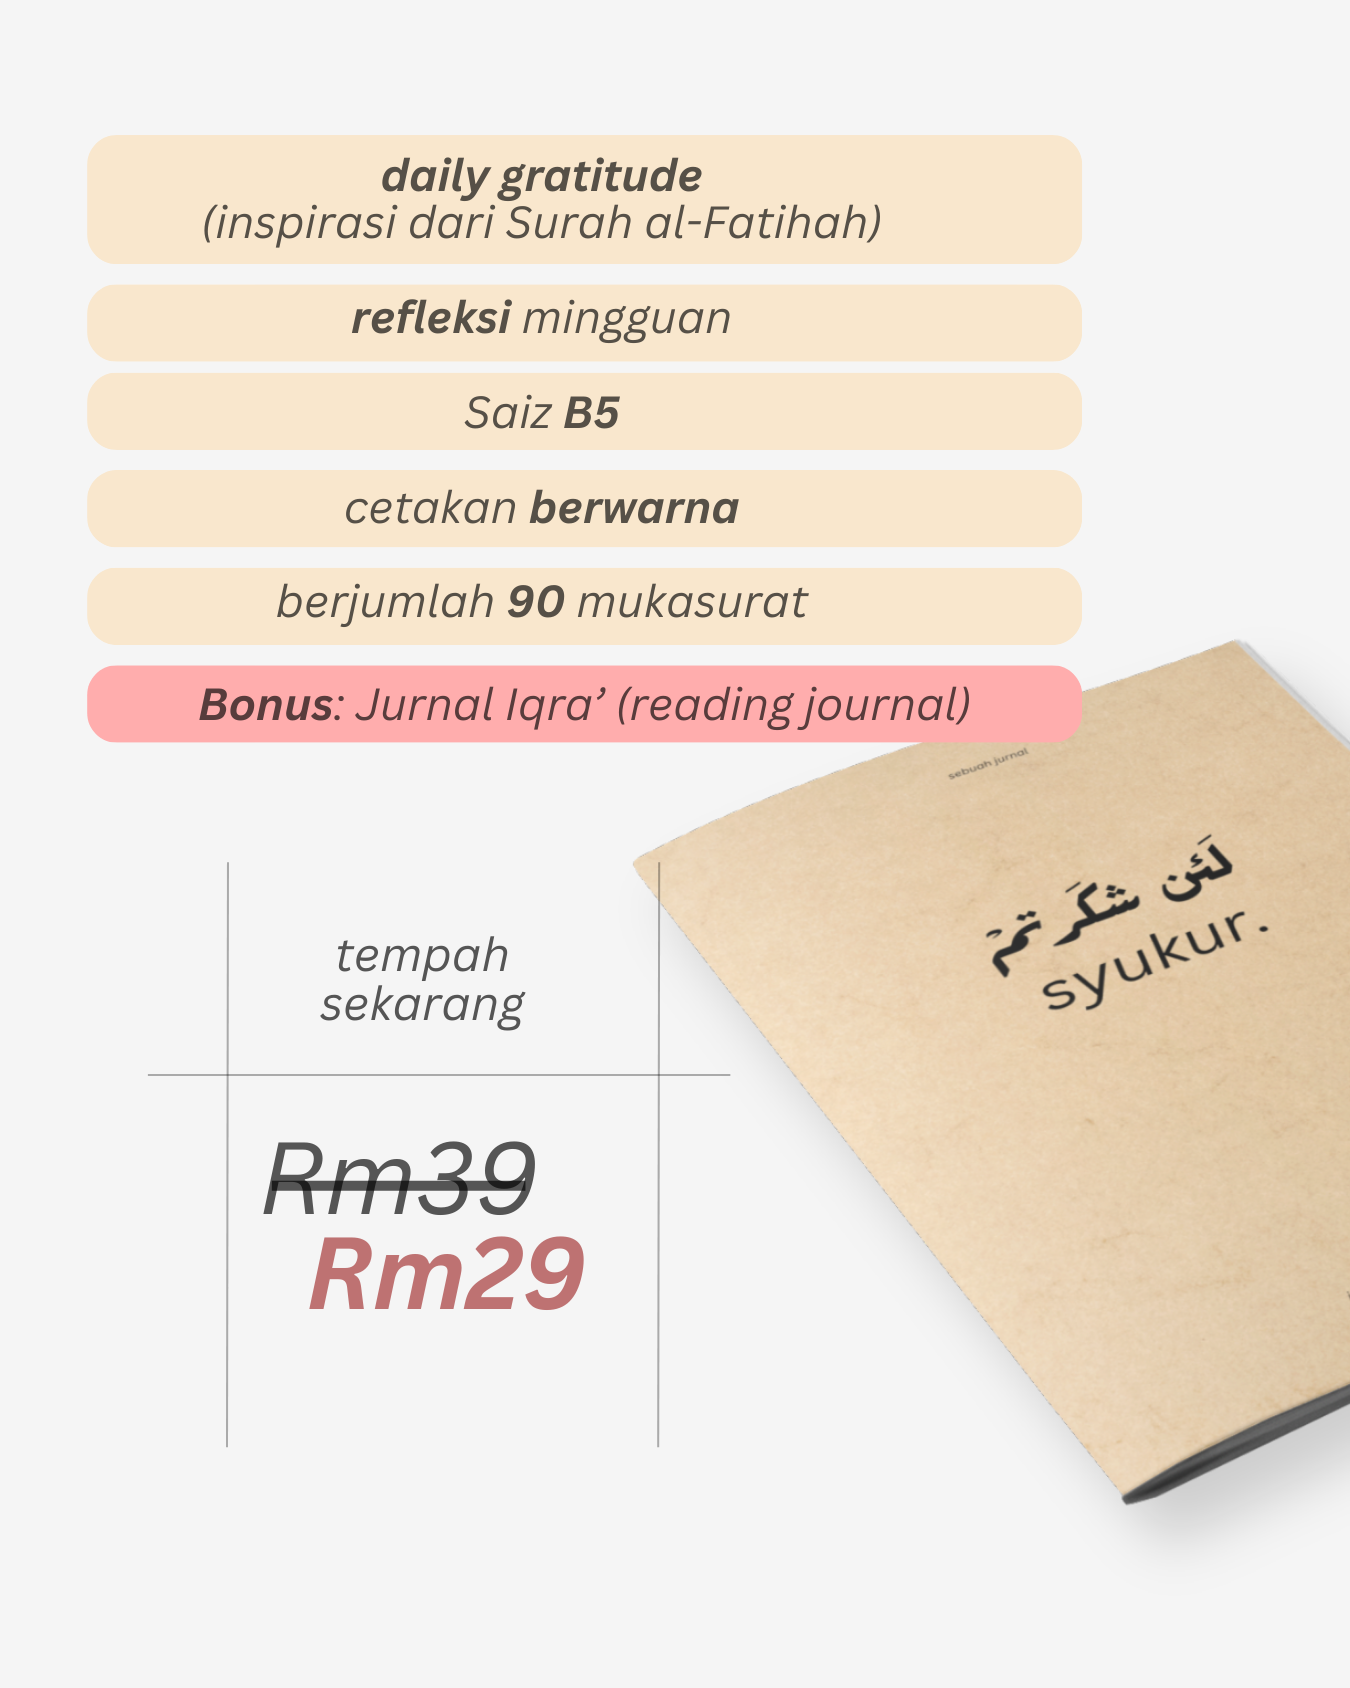 daily gratitude
(inspirasi dari Surah al-Fatihah)
refleksi mingguan
Saiz B5
cetakan berwarna
berjumlah 90 mukasurat
Bonus: Jurnal Iqra’ (reading journal)
sebuah jurnal
لَئن شكَرتمْ
syukur.
tempah
sekarang
Rm39
Rm29